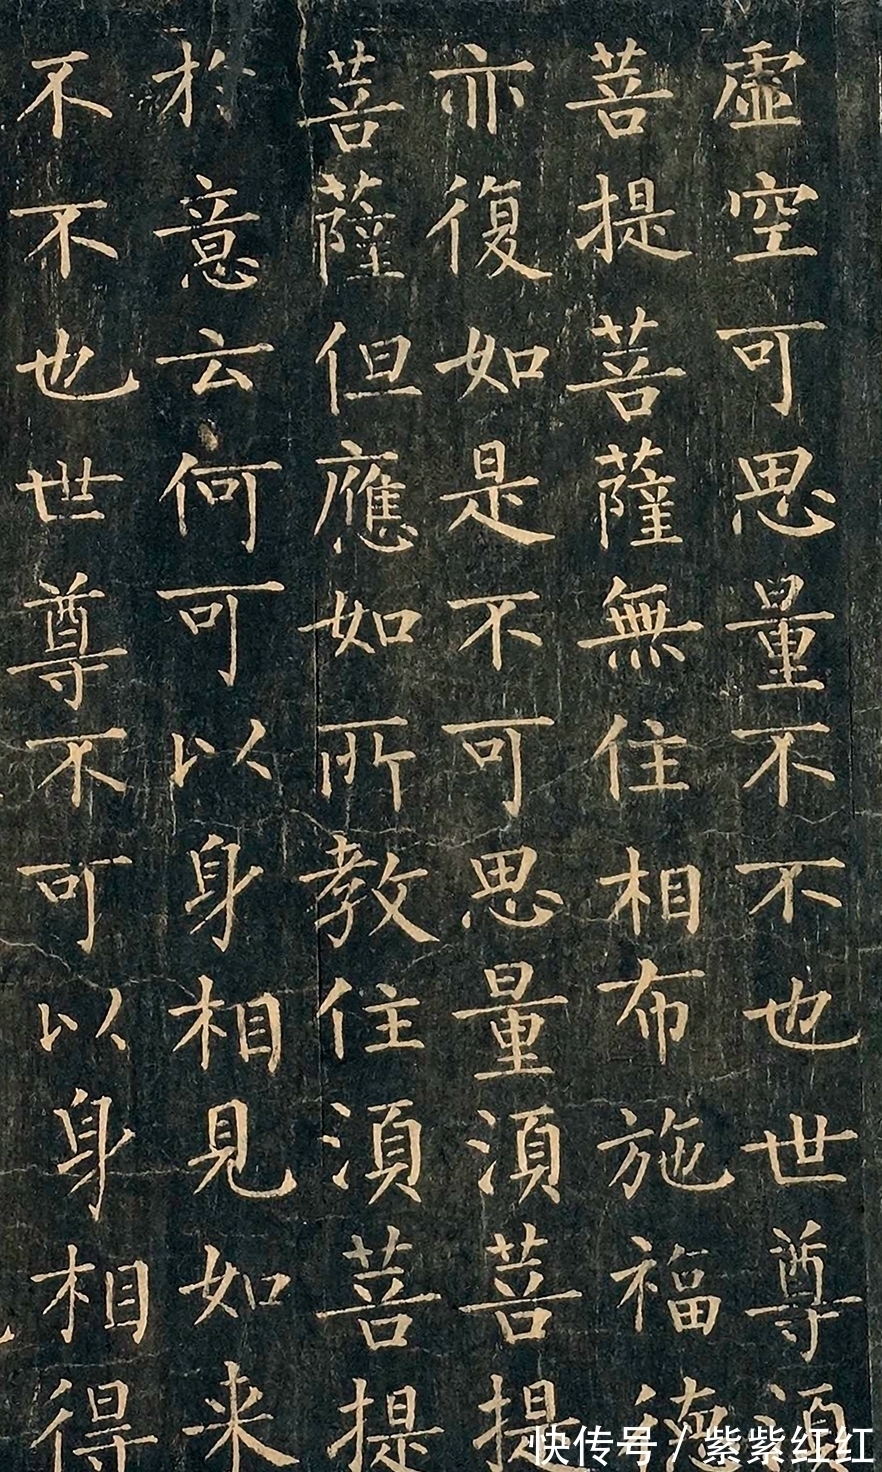 虛空可思量不不也世尊湏
菩提菩薩無住相布施福德
亦復如是不可思量湏菩提
菩薩但應如所教住湏菩提
於意云何可以身相見如来
不不也世尊不可以身相得
快传号 / 紫紫红红